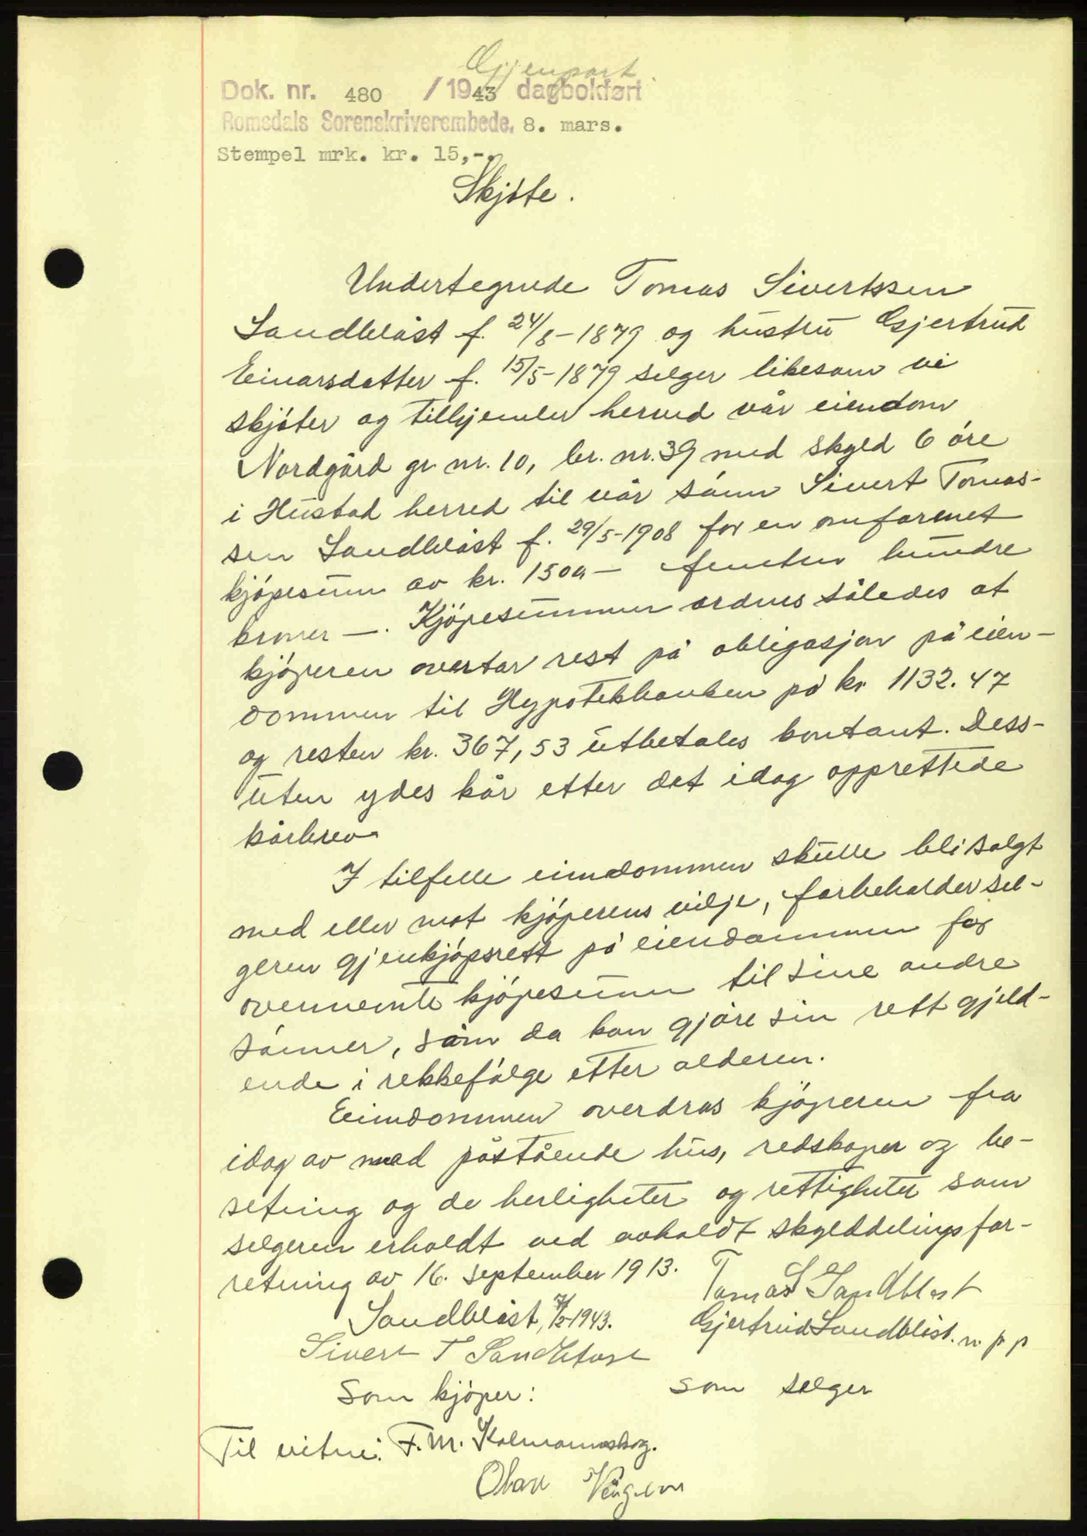 Gjenpart
Dok. nr. 480 /1943 dagbokført
Romsdals Sorenskriverembede, 8. mars.
Stempel mrk. kr. 15,-.
Skjøte.
Undertegnede Tomas Sivertssen
Sandblåst f. 24/8-1879 og hustru Gjertrud
Einarsdatter f. 15/5-1879 selger likesom vi
skjøter og tilhjemler herved vår eiendom
Nordgård gr. nr. 10, br. nr. 39 med skyld 6 øre
i Hustad herred til vår sønn Sivert Tomas-
sen Sandblåst f. 29/5-1908 for en omforenet
kjøpesum av kr. 1500 — femten hundre
kroner —. Kjøpesummen ordnes således at
kjøperen overtar rest på obligasjon på eien-
dommen til Hypotekbanken på kr 1132.47
og resten kr. 367,53 utbetales kontant. Dess-
uten ydes kår etter det idag opprettede
kårbrev
I tilfelle eiendommen skulle bli solgt
med eller mot kjøperens vilje, forbeholder sel-
geren gjenkjøpsrett på eiendommen for
ovennemte kjøpesum til sine andre
sønner, som da kan gjøre sin rett gjeld-
ende i rekkefølge etter alderen.
Eiendommen overdras kjøperen fra
idag av med påstående hus, redskaper og be-
setning og de herligheter og rettigheter som
selgeren erholdt ved avholdt skylddelingsfor-
retning av 16. september 1913.
Tomas S Sandblåst
Sandblåst, 1943.
Gjertrud Sandblåst. m p p
Sivert T Sandblåst
som kjøper:
som selger
Til vitne: F. M. Kolmannskog.
Olav